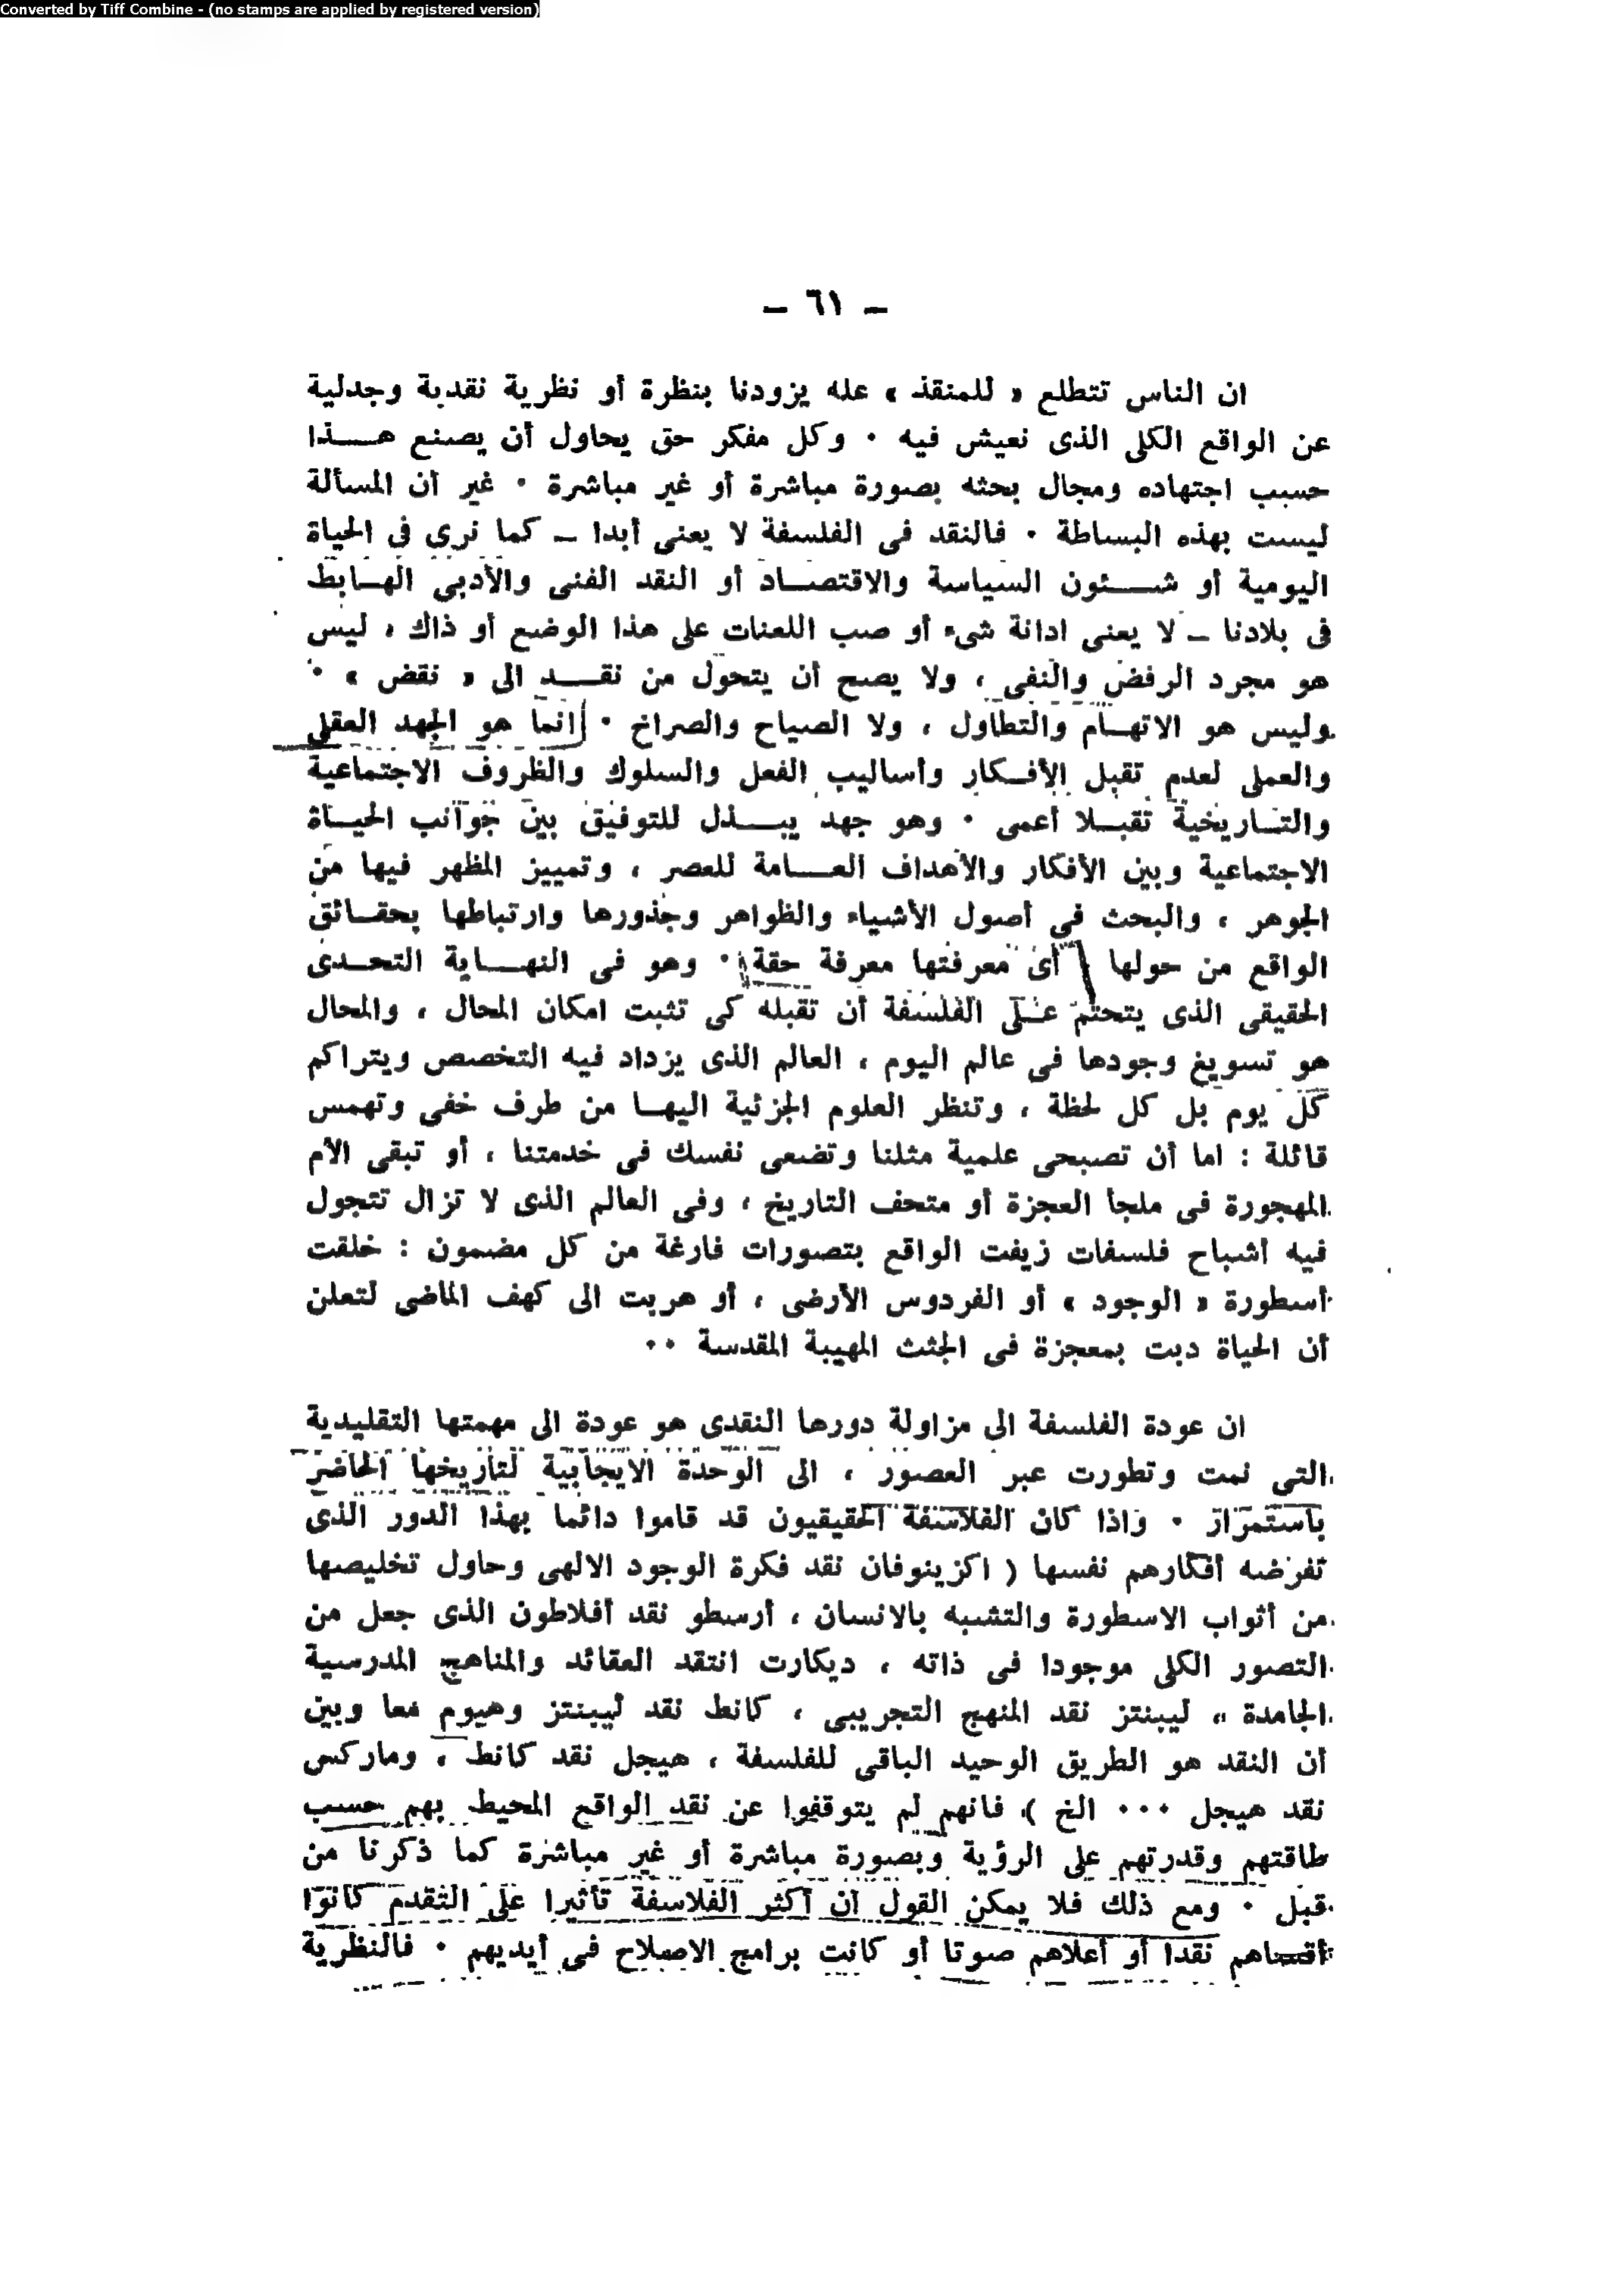 Converted by Tiff Combine - (no stamps are applied by registered version)
— ٦١ —
ان الناس تتطلع « للمنقذ » عله يزودنا بنظرة أو نظرية نقدية وجدلية
عن الواقع الكلى الذى نعيش فيه . وكل مفكر حق يحاول أن يصنع هذا
حسب اجتهاده ومجال بحثه بصورة مباشرة أو غير مباشرة . غير أن المسألة
ليست بهذه البساطة . فالنقد فى الفلسفة لا يعنى أبدا – كما نرى فى الحياة
اليومية أو شئون السياسة والاقتصاد أو النقد الفنى والأدبى الهابط
فى بلادنا – لا يعنى ادانة شىء أو صب اللعنات على هذا الوضع أو ذاك ، ليس
هو مجرد الرفض والنفى ، ولا يصح أن يتحول من نقد الى « نقض » .
وليس هو الاتهام والتطاول ، ولا الصياح والصراخ . انما هو الجهد العقلى
والعملى لعدم تقبل الأفكار وأساليب الفعل والسلوك والظروف الاجتماعية
والتاريخية تقبلا أعمى . وهو جهد يبذل للتوفيق بين جوانب الحياة
الاجتماعية وبين الأفكار والأهداف العامة للعصر ، وتمييز المظهر فيها من
الجوهر ، والبحث فى أصول الأشياء والظواهر وجذورها وارتباطها بحقائق
الواقع من حولها ( أى معرفتها معرفة حقة ) . وهو فى النهاية التحدى
الحقيقى الذى يتحتم على الفلسفة أن تقبله كى تثبت امكان المحال ، والمحال
هو تسويغ وجودها فى عالم اليوم ، العالم الذى يزداد فيه التخصص ويتراكم
كل يوم بل كل لحظة ، وتنظر العلوم الجزئية اليها من طرف خفى وتهمس
قائلة : اما أن تصبحى علمية مثلنا وتضعى نفسك فى خدمتنا ، أو تبقى الأم
المهجورة فى ملجأ العجزة أو متحف التاريخ ، وفى العالم الذى لا تزال تتجول
فيه أشباح فلسفات زيفت الواقع بتصورات فارغة من كل مضمون : خلقت
أسطورة « الوجود » أو الفردوس الأرضى ، أو هربت الى كهف الماضى لتعلن
أن الحياة دبت بمعجزة فى الجثث المهيبة المقدسة ..
ان عودة الفلسفة الى مزاولة دورها النقدى هو عودة الى مهمتها التقليدية
التى نمت وتطورت عبر العصور ، الى الوحدة الايجابية لتاريخها الحاضر
باستمرار . واذا كان الفلاسفة الحقيقيون قد قاموا دائما بهذا الدور الذى
تفرضه أفكارهم نفسها ( اكزينوفان نقد فكرة الوجود الالهى وحاول تخليصها
من أثواب الاسطورة والتشبه بالانسان ، أرسطو نقد أفلاطون الذى جعل من
التصور الكلى موجودا فى ذاته ، ديكارت انتقد العقائد والمناهج المدرسية
الجامدة ، ليبنتز نقد المنهج التجريبى ، كانط نقد ليبنتز وهيوم معا وبين
أن النقد هو الطريق الوحيد الباقى للفلسفة ، هيجل نقد كانط ، وماركس
نقد هيجل ... الخ ) ، فانهم لم يتوقفوا عن نقد الواقع المحيط بهم حسب
طاقتهم وقدرتهم على الرؤية وبصورة مباشرة أو غير مباشرة كما ذكرنا من
قبل . ومع ذلك فلا يمكن القول أن أكثر الفلاسفة تأثيرا على التقدم كانوا
أقساهم نقدا أو أعلاهم صوتا أو كانت برامج الاصلاح فى أيديهم . فالنظرية